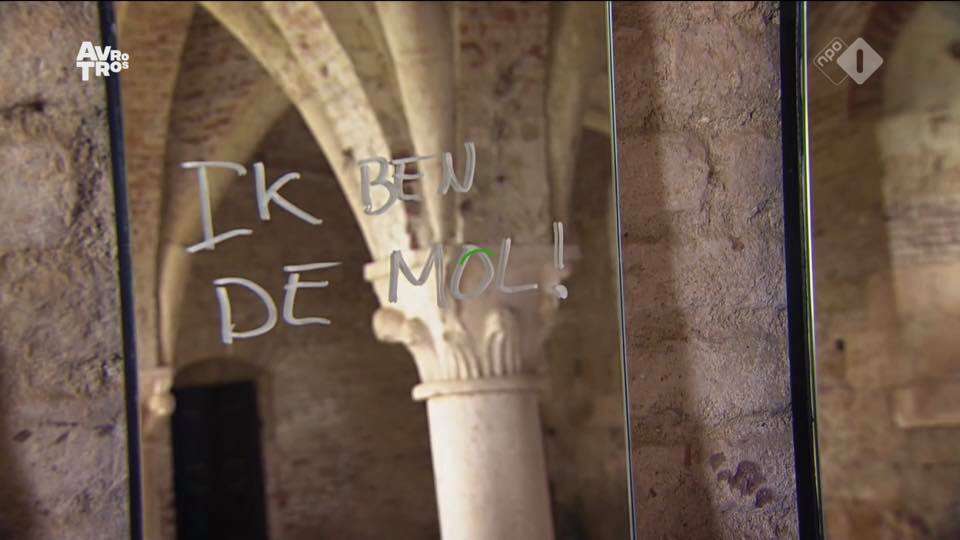 AVRO
TROS
npo 1
IK BEN
DE MOL!